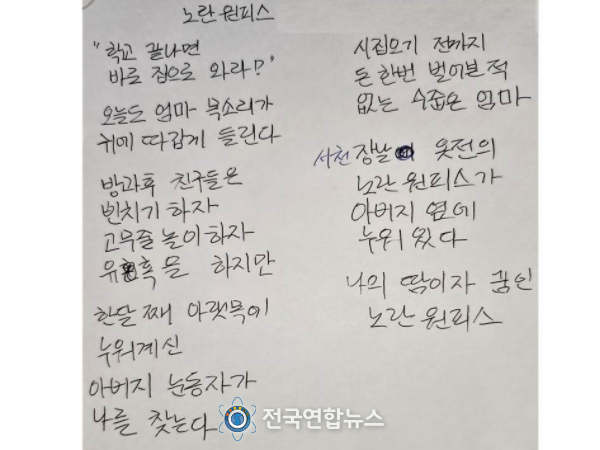 노란 원피스
"학교 끝나면
바로 집으로 와라?"
오늘도 엄마 목소리가
귀에 따갑게 들린다
방과후 친구들은
삔치기 하자
고무줄 놀이 하자
유혹을 하지만
한달 째 아랫목에
누워계신
아버지 눈동자가
나를 찾는다
시집오기 전까지
돈 한번 벌어본 적
없는 수줍은 엄마
서천 장날 옷전의
노란 원피스가
아버지 옆에
누워 있다
나의 땀이자 꿈인
노란 원피스
전국연합뉴스